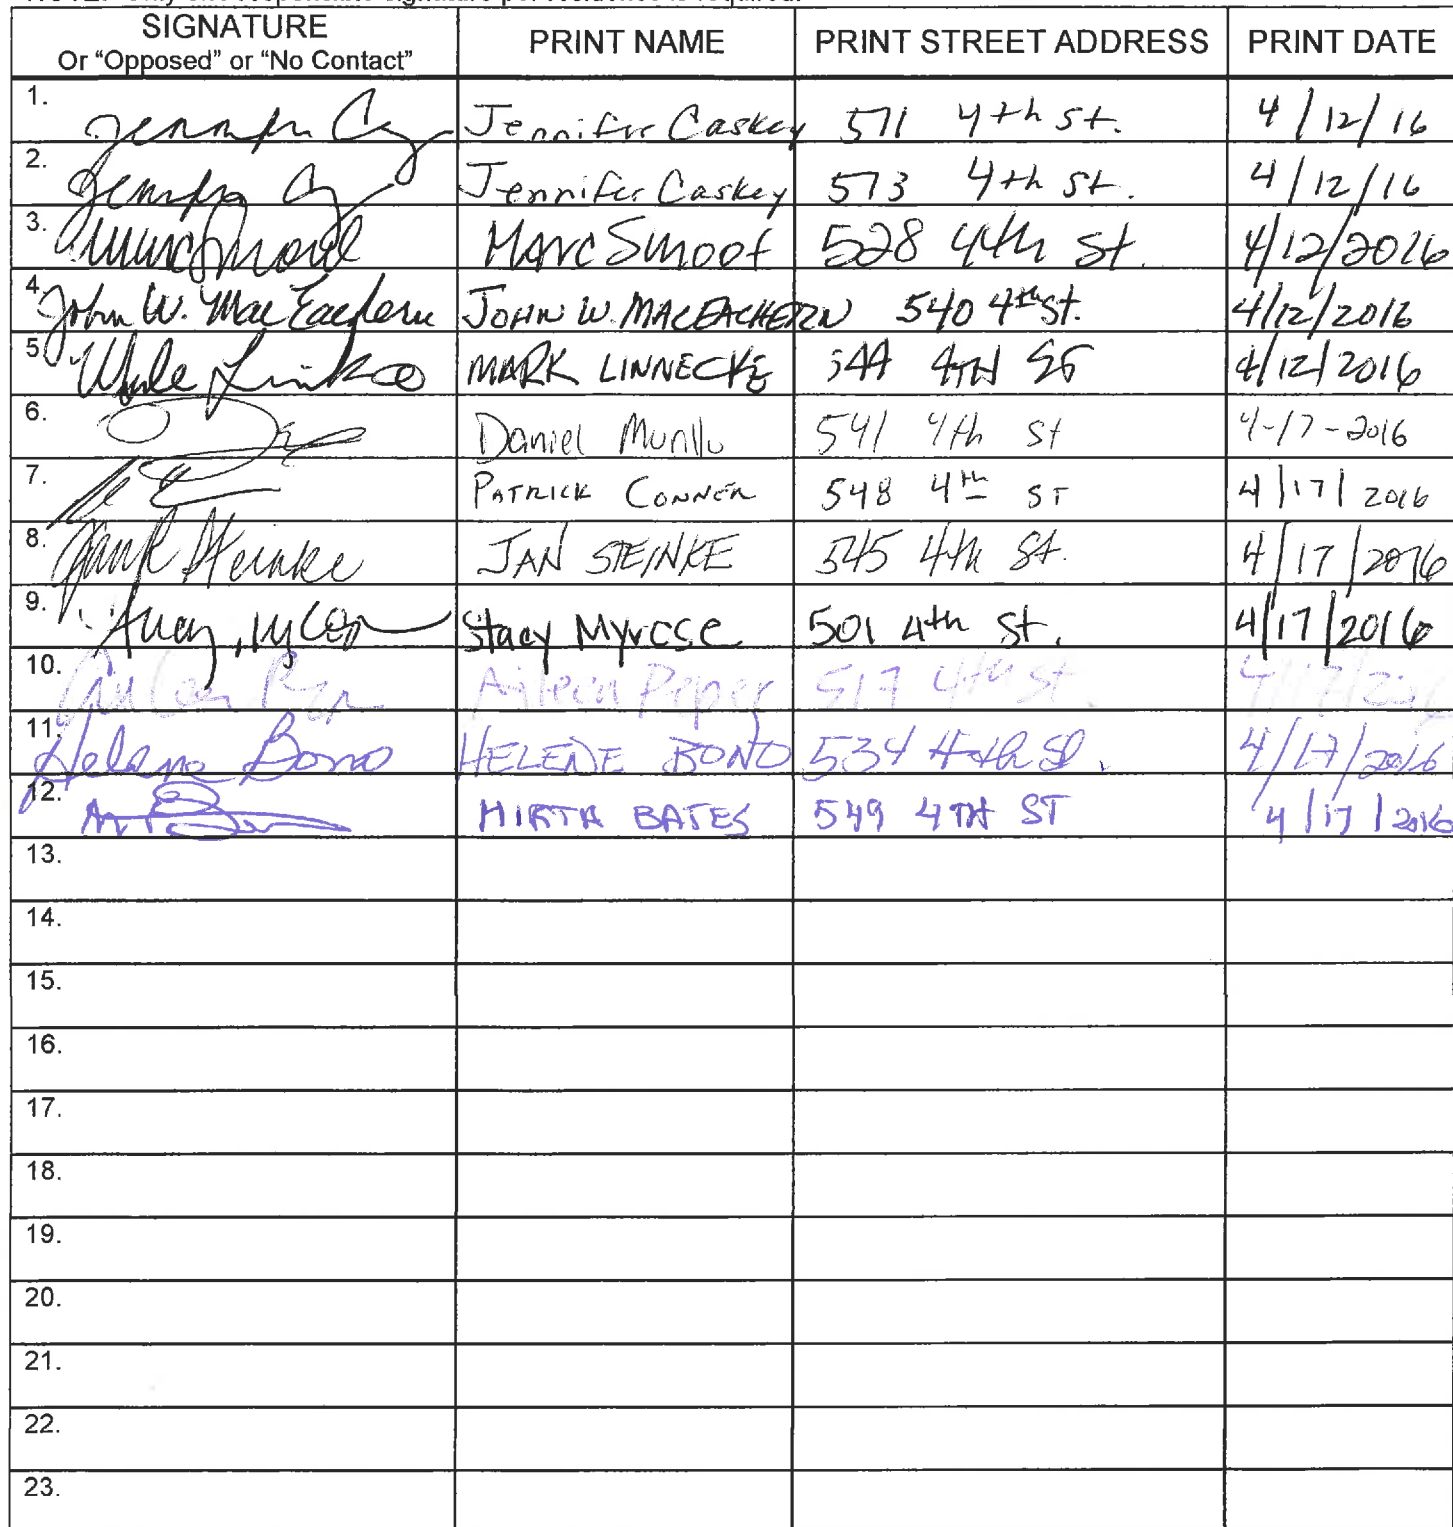 SIGNATURE PRINT NAME PRINT STREET ADDRESS PRINT DATE
Or “Opposed” or “No Contact”
1. Jennifer Caskey 571 4th St. 4/12/16
2. Jennifer Caskey 573 4th St. 4/12/16
3. Marc Smoot 528 4th St. 4/12/2016
4. John W. MacEachern JOHN W. MACEACHERN 540 4th St. 4/12/2016
5. MARK LINNECKE 544 4TH ST 4/12/2016
6. Daniel Murillo 541 4th St 4-17-2016
7. PATRICK CONNER 548 4th ST 4/17/2016
8. Jan Steinke JAN STEINKE 545 4th St. 4/17/2016
9. Stacy Myrose 501 4th St. 4/17/2016
10. Piper 517 4th St. 4/17/2016
11. Helene Bono HELENE BONO 534 4th St. 4/17/2016
12. MIRTA BATES 549 4TH ST 4/17/2016
13.
14.
15.
16.
17.
18.
19.
20.
21.
22.
23.